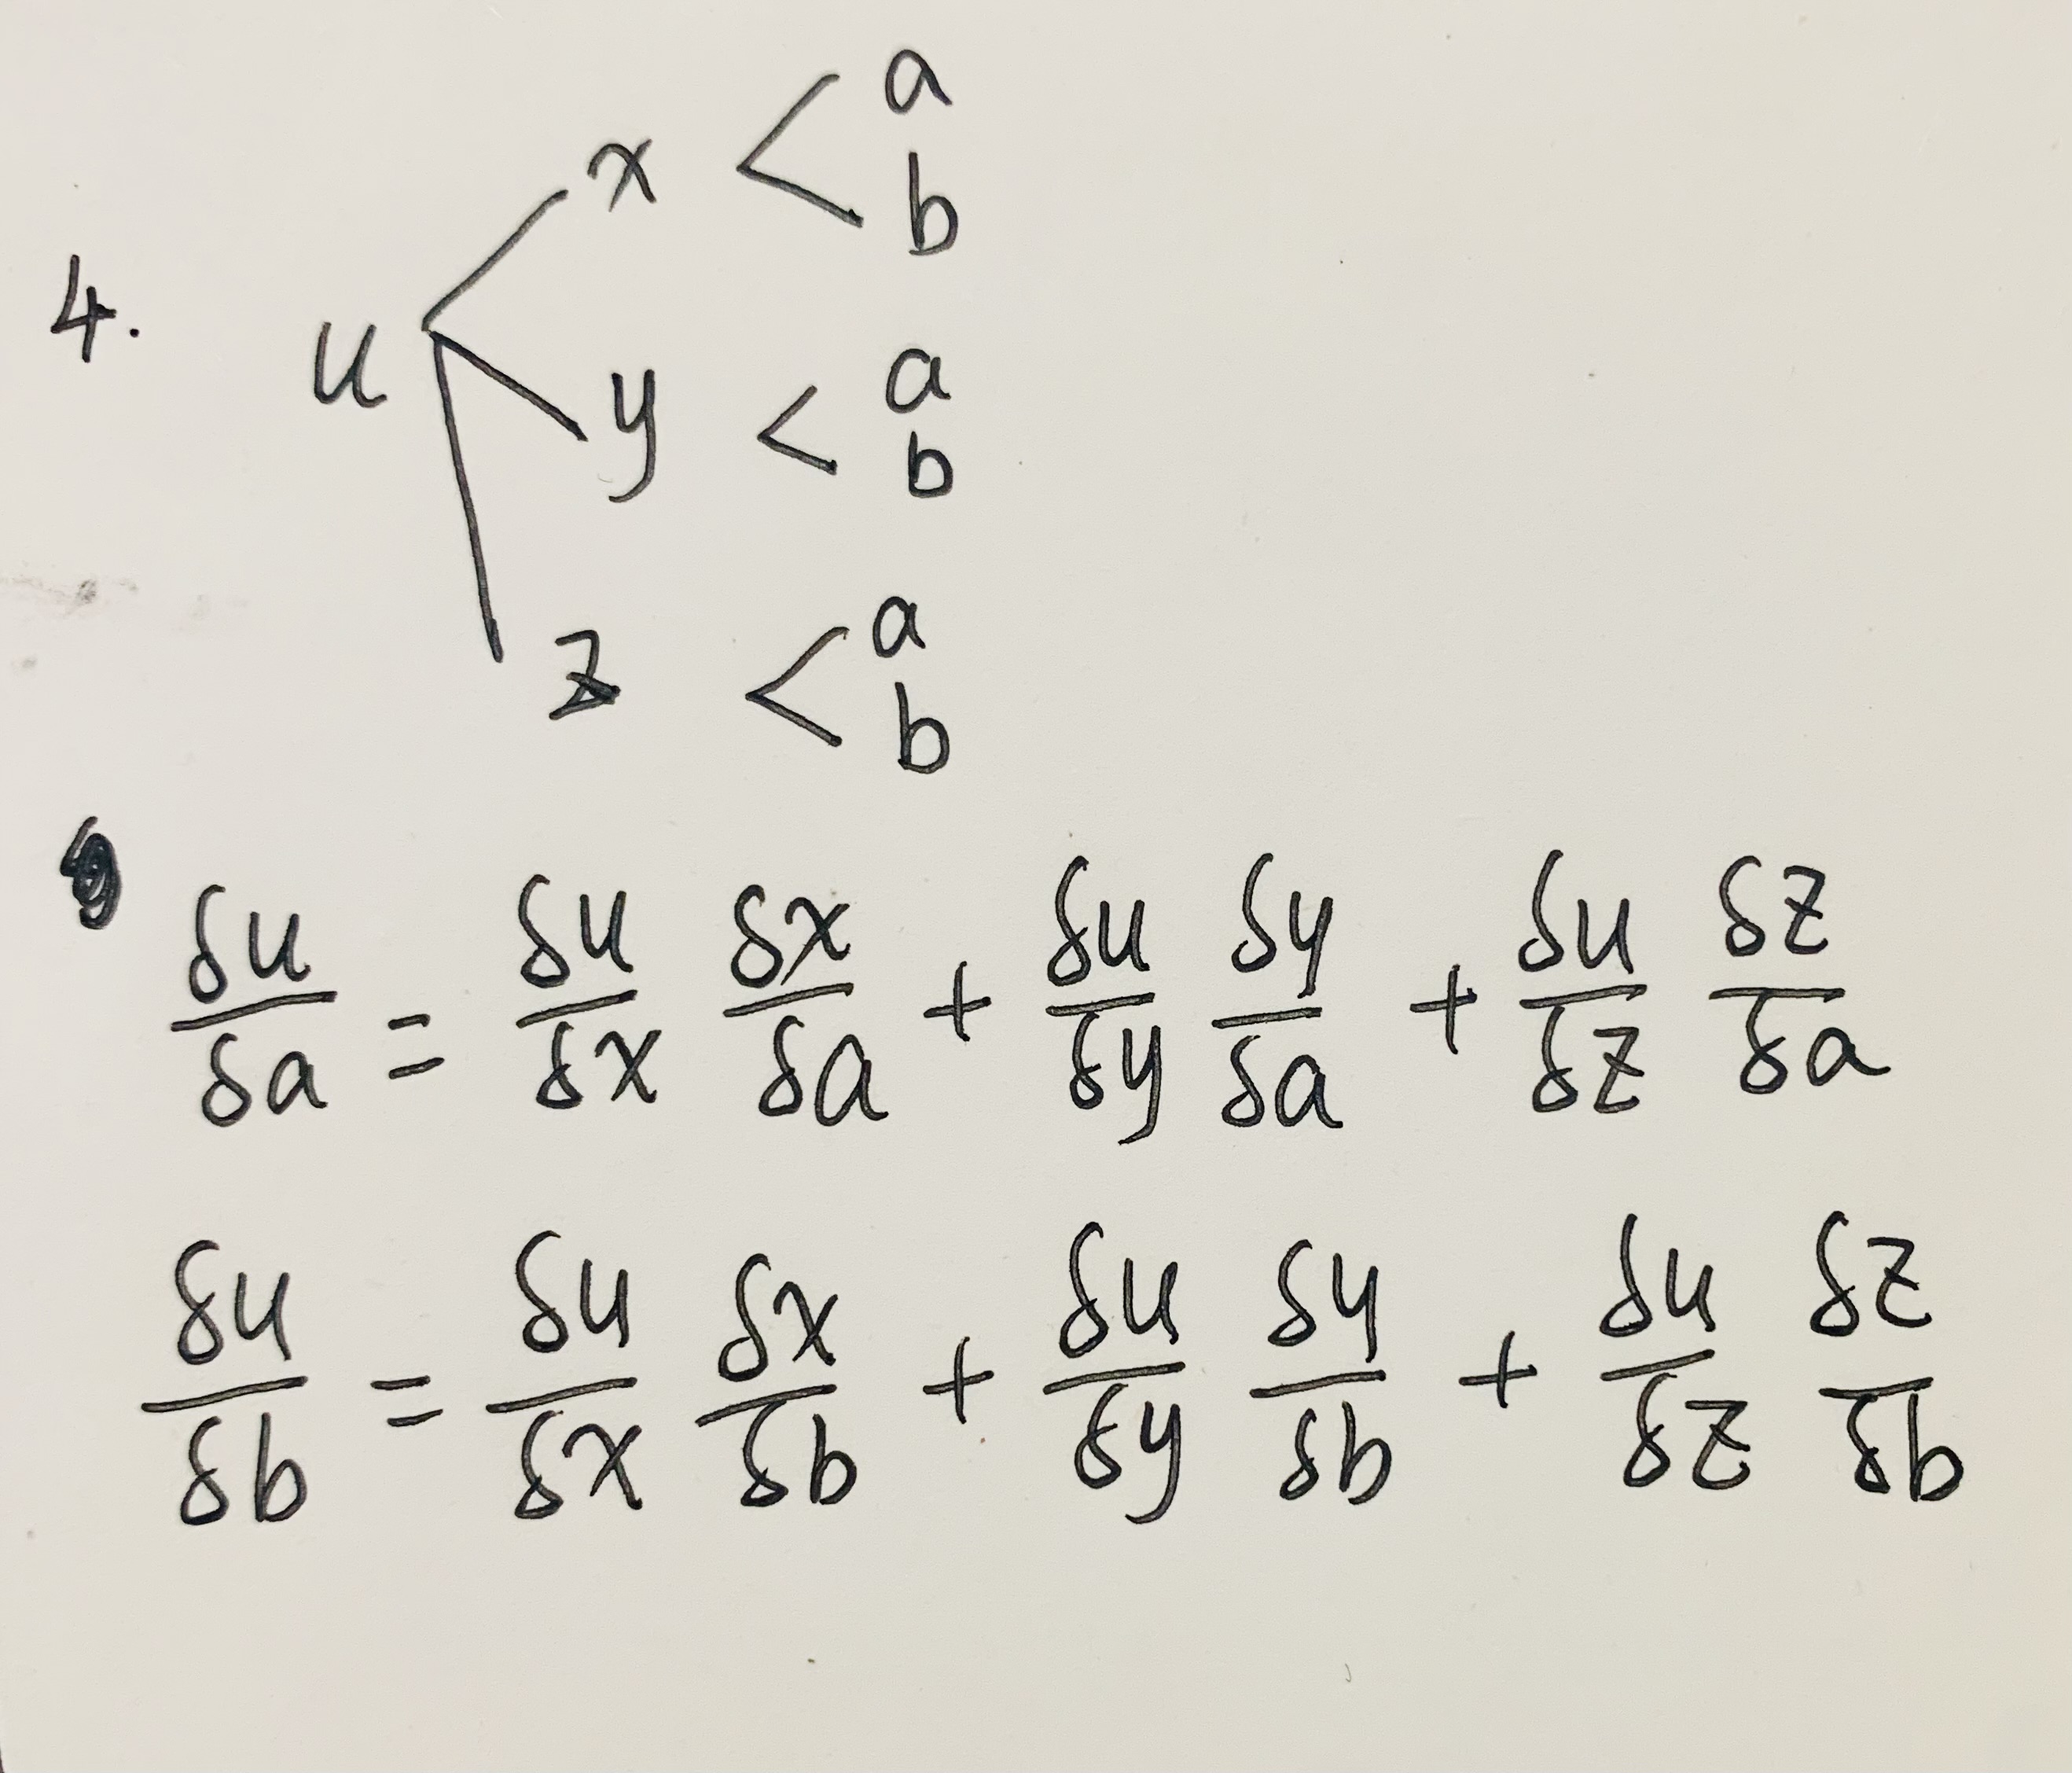 a
x <
b
4.
u
a
y <
b
a
z <
b
δu/δa = δu/δx δx/δa + δu/δy δy/δa + δu/δz δz/δa
δu/δb = δu/δx δx/δb + δu/δy δy/δb + δu/δz δz/δb